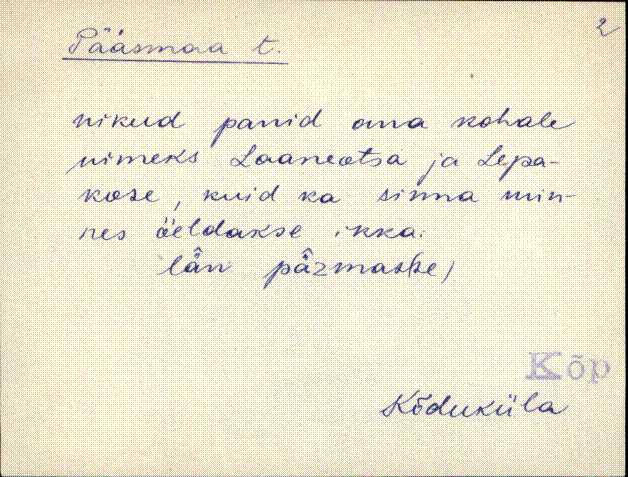 2
Pääsmaa t.
nikud panid oma kohale
nimeks Laaneotsa ja Lepa-
kose, kuid ka sinna min-
nes öeldakse ikka:
lǟn pǟzmas(se)
Kõp
Kõduküla